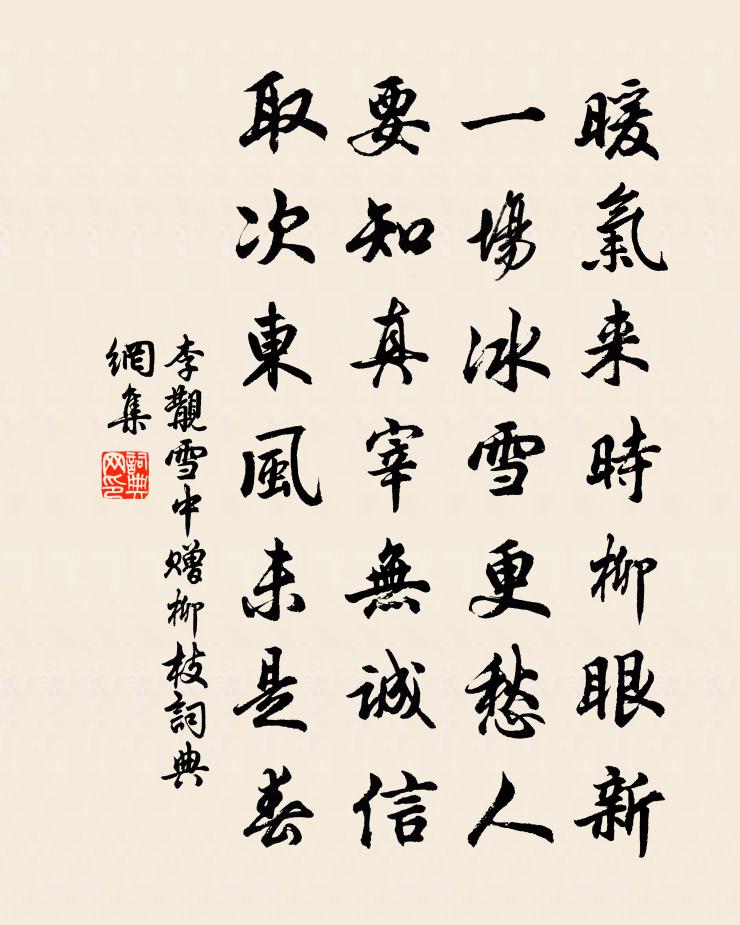 暖氣来時柳眼新
一場冰雪更愁人
要知真宰無誠信
取次東風未是春
李觀雪中赠柳枝詞典
網集
詞典网印